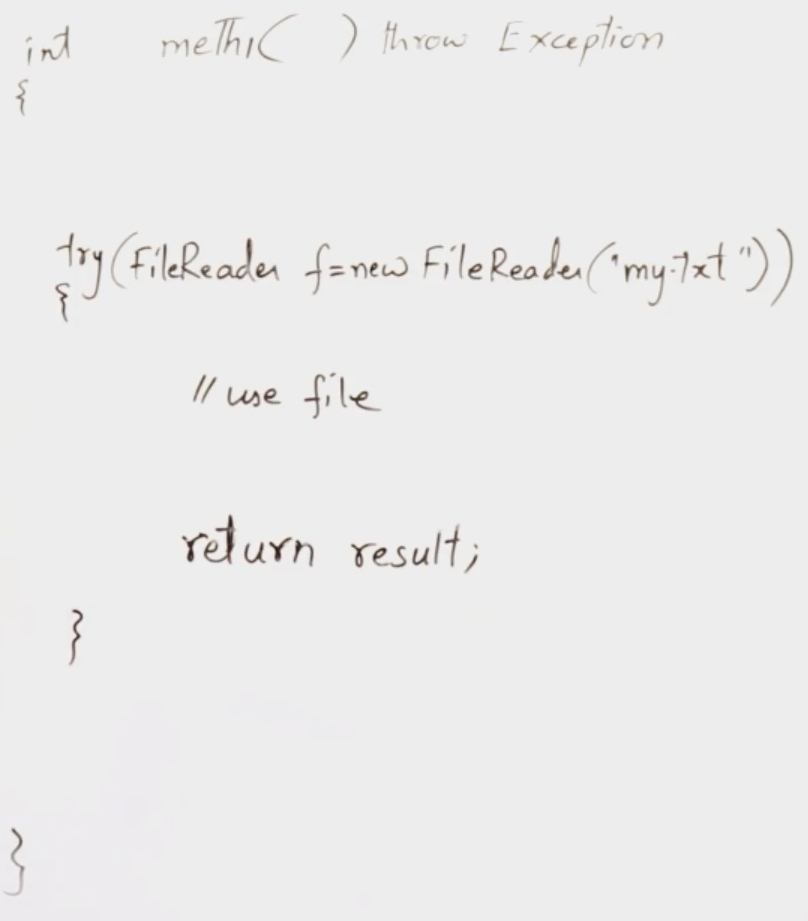 int meth1( ) throw Exception
{
try(FileReader f=new FileReader("my.txt"))
{
// use file
return result;
}
}